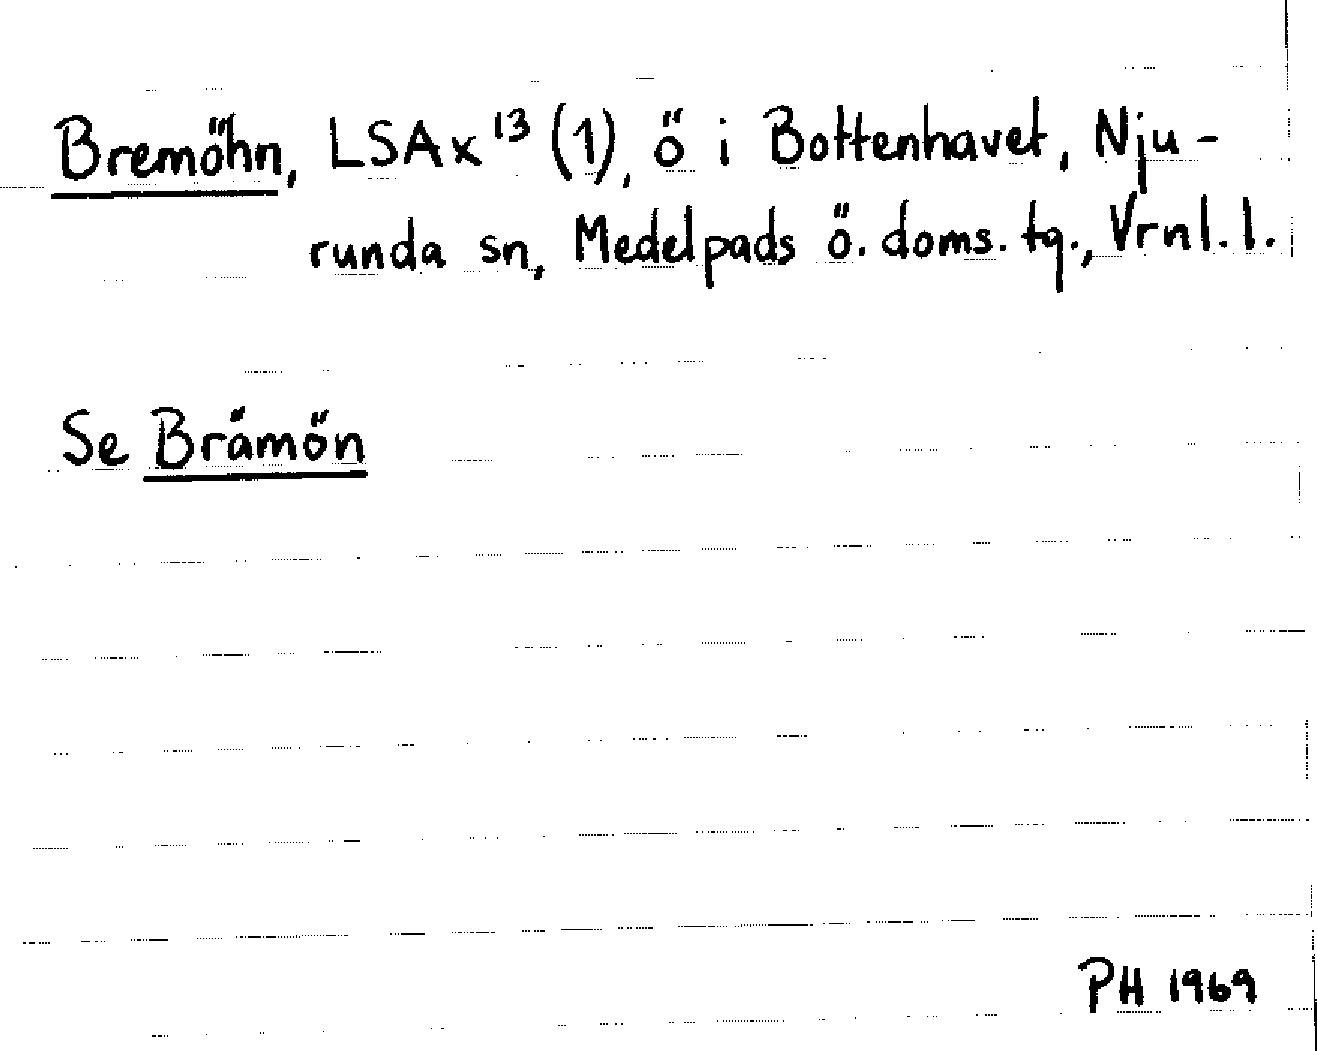 Bremöhn, LSAx¹³ (1), ö i Bottenhavet, Nju-
runda sn, Medelpads ö. doms. tg., Vrnl. l.
Se Brämön
PH 1969